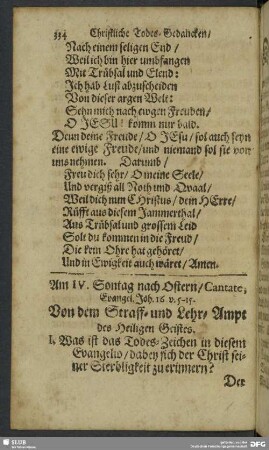 334 Christliche Todes-Gedancken/
Nach einem seligen End/
Weil ich bin hier umbfangen
Mit Trübsal und Elend:
Ich hab Lust abzuscheiden
Von dieser argen Welt:
Sehn mich nach ewgen Freuden/
O JESU! komm nur bald.
Denn deine Freude/ O JEsu/ sol auch seyn
eine ewige Freude/ und niemand sol sie von
uns nehmen. Darumb/
Freu dich sehr/ O meine Seele/
Und vergiß all Noth und Qvaal/
Weil dich nun CHristus/ dein HErre/
Rüfft aus diesem Jammerthal/
Aus Trübsal und grossem Leid
Solt du kommen in die Freud/
Die kein Ohre hat gehöret/
Und in Ewigkeit auch wäret/ Amen.
Am IV. Sontag nach Ostern/ Cantate,
Evangel. Joh. 16 v. 5-15.
Von dem Straff- und Lehr-Ampt
des Heiligen Geistes.
I. Was ist das Todes-Zeichen in diesem
Evangelio/ dabey sich der Christ sei-
ner Sterbligkeit zu erinnern?
Der
SLUB